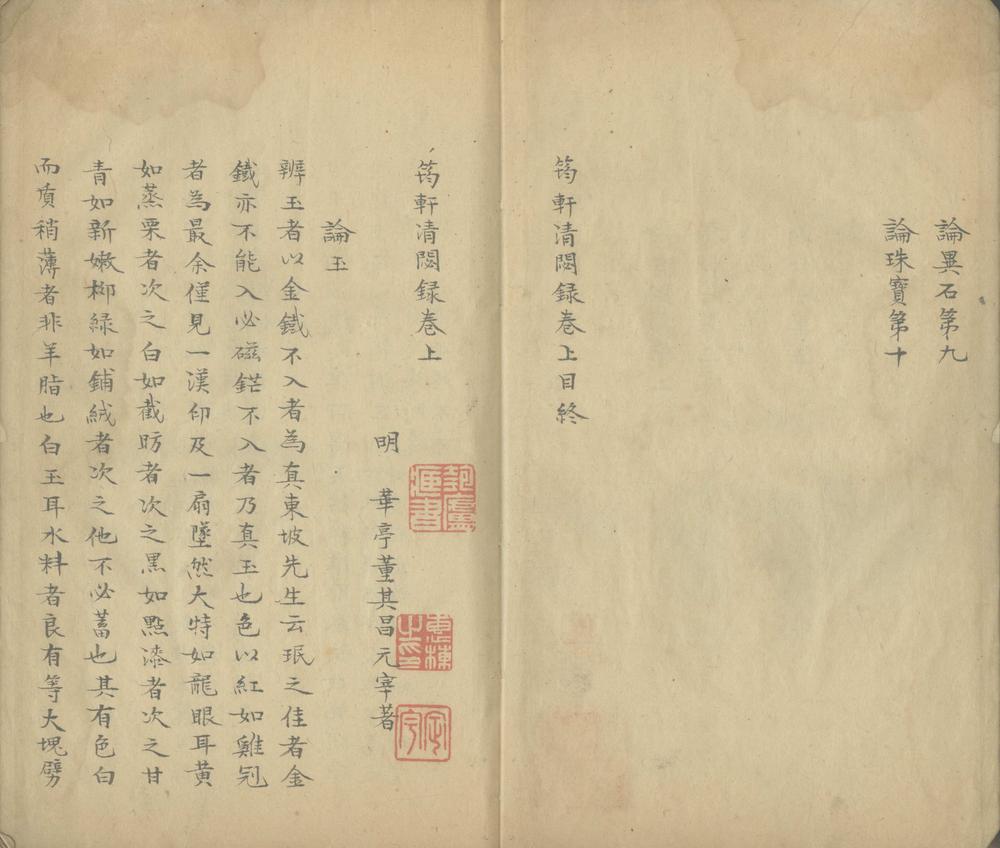 論異石第九
論珠寶第十
筠軒清閟録卷上目終
筠軒清閟録卷上
明
華亭董其昌元宰著
論玉
辨玉者以金鐵不入者為真東坡先生云珉之佳者金
鐵亦不能入必磁鋩不入者乃真玉也色以紅如雞冠
者為最余僅見一漢印及一扇墜然大特如龍眼耳黃
如蒸栗者次之白如截肪者次之黑如點漆者次之甘
青如新嫩柳綠如鋪絨者次之他不必蓄也其有色白
而质稍薄者非羊脂也白玉耳水料者良有等大塊劈
惠棟之印
定宇